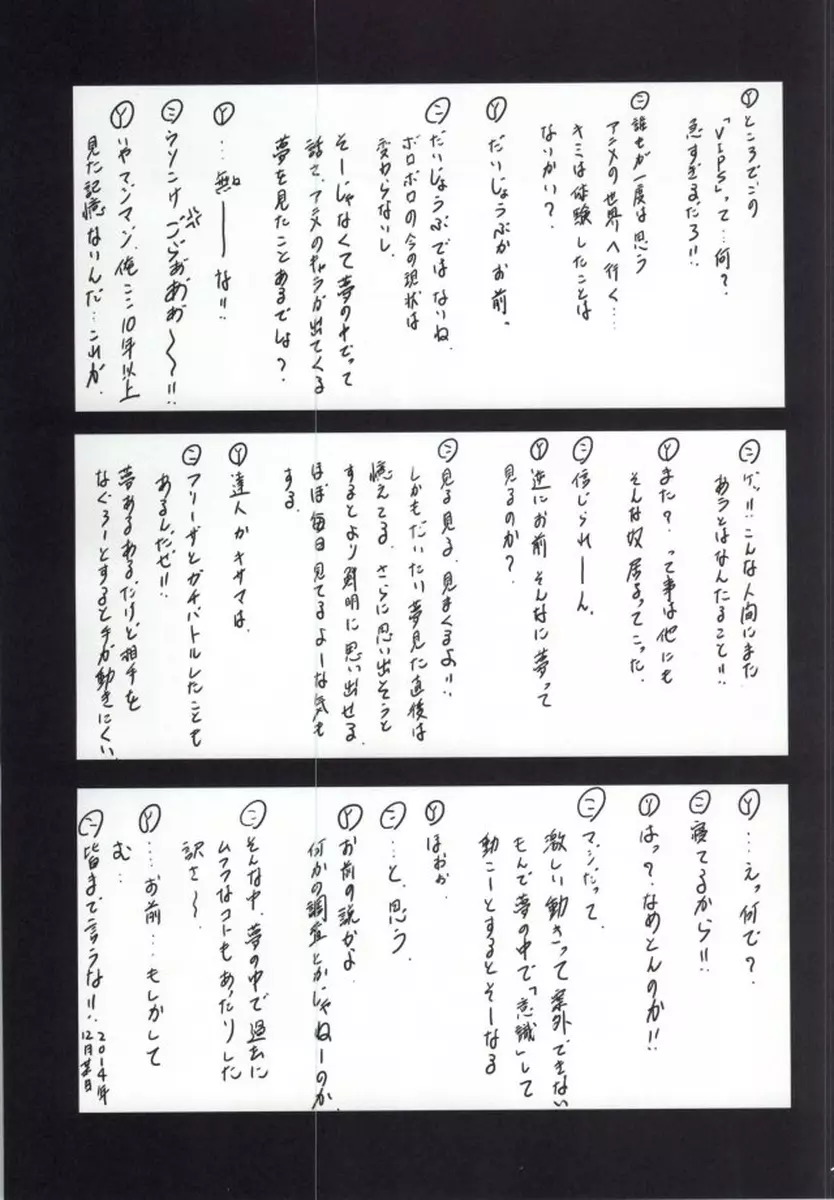 Ⓨところでこの
「VIPS」って…何?
急すぎるだろ!!
㊁誰もが一度は思う
アニメの世界へ行く…。
キミは体験したことは
ないかい?
Ⓨだいじょうぶかお前。
㊁だいじょうぶではないね。
ボロボロの今の現状は
変わらないし。
そーじゃなくて夢の中でって
話さ、アニメのキャラが出てくる
夢を見たことあるでしょ?
Ⓨ…無ーーな!!
㊁ウソこけごらぁぁぁ〜〜!!
Ⓨいやマンマン、俺ここ10年以上
見た記憶ないんだ…これが。
㊁ゲッ!!こんな人間にまた
あうとはなんたること!!
Ⓨまた?って事は他にも
そんな奴居るってこった。
㊁信じられーん。
Ⓨ逆にお前そんなに夢って
見るのか?
㊁見る見る、見まくるよ!!
しかもだいたい夢見た直後は
憶えてる。さらに思い出そうと
するとより鮮明に思い出せる。
ほぼ毎日見てるよーな気も
する。
Ⓨ達人かキサマは。
㊁フリーザとガチバトルしたことも
あるしだぜ!!
夢あるあるだけど相手を
なぐろーとすると手が動きにくい。
Ⓨ…えっ何で?
㊁寝てるから!!
Ⓨはっ?なめとんのか!!
㊁マジだって。
激しい動きって案外できない
もんで夢の中で「意識」して
動こーとするとそーなる
Ⓨほぉぉ
㊁…と、思う。
Ⓨお前の説かよ
何かの調査とかじゃねーのか。
㊁そんな中、夢の中で過去に
ムフフなコトもあったりした
訳さ〜。
Ⓨ……お前…もしかして
む…
㊁皆まで言うな!!
2014年
12月某日